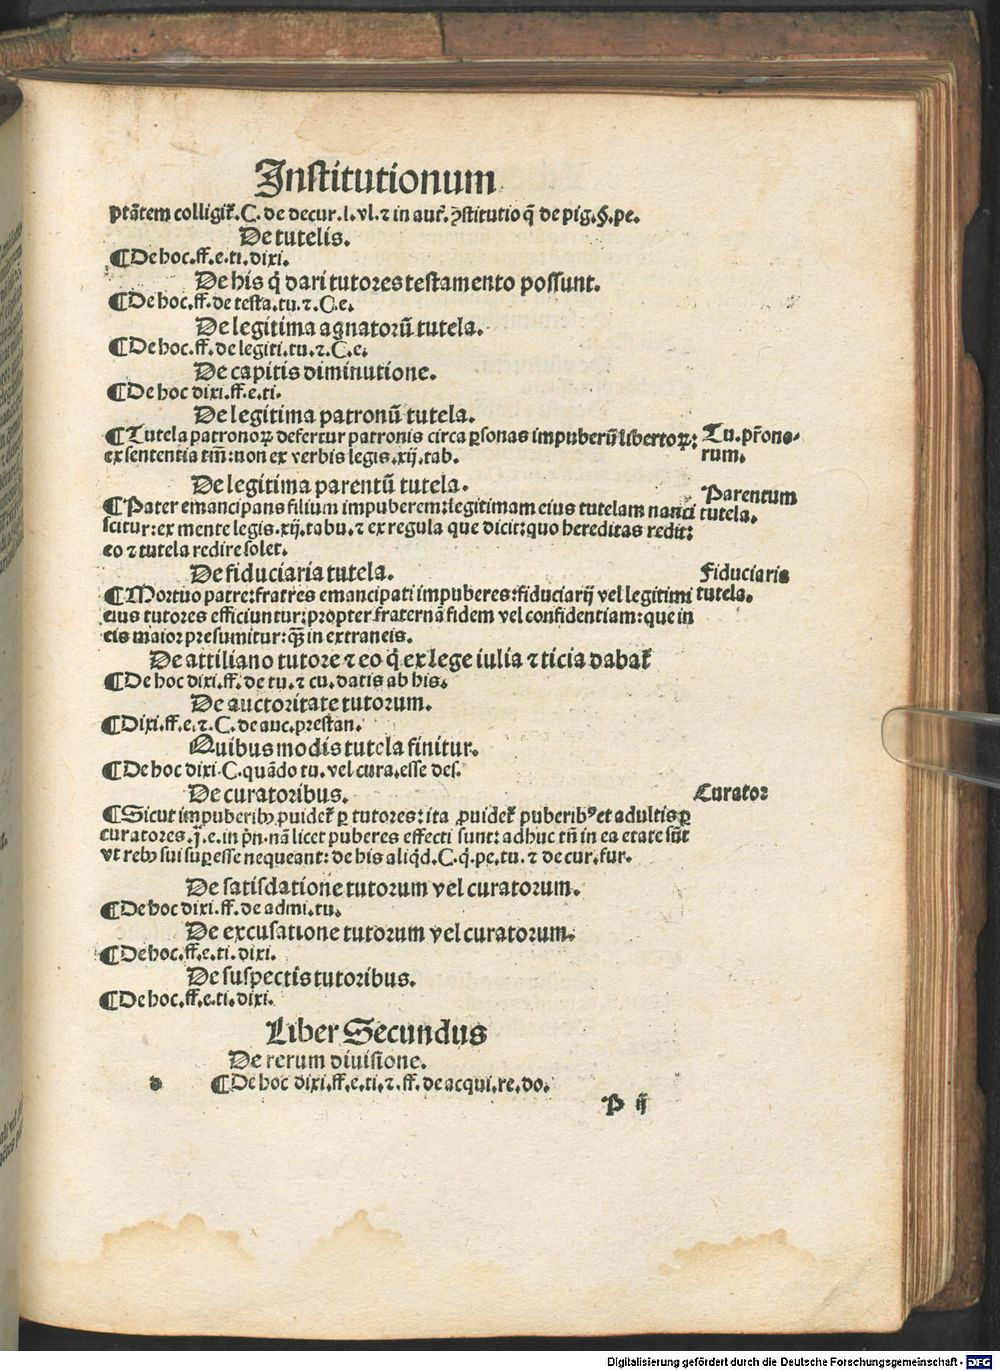 Institutionum
ptãtem colligit̃.C. de decur.l.vl.⁊ in aut̃.ꝯstitutio q̃ de pig.§.pe.
De tutelis.
¶De hoc.ff.e.ti.dixi.
De his q̃ dari tutores testamento possunt.
¶De hoc.ff.de testa.tu.⁊.C.e.
De legitima agnatorũ tutela.
¶De hoc.ff.de legiti.tu.⁊.C.e.
De capitis diminutione.
¶De hoc dixi.ff.e.ti.
De legitima patronũ tutela.
¶Tutela patronoꝝ defertur patronis circa ꝑsonas impuberũ libertoꝝ:
ex sententia tm̃:non ex verbis legis.xij.tab.
Tu.pr̃ono-
rum.
De legitima parentũ tutela.
¶Pater emancipans filium impuberem:legitimam eius tutelam nanci
scitur:ex mente legis.xij.tabu.⁊ ex regula que dicit:quo hereditas redit:
eo ⁊ tutela redire solet.
Parentum
tutela.
De fiduciaria tutela.
¶Mortuo patre:fratres emancipati impuberes:fiduciarij vel legitimi
eius tutores efficiuntur:propter fraternã fidem vel confidentiam:que in
eis maior presumitur:q̃ȝ in extraneis.
Fiduciaria
tutela.
De attiliano tutore ⁊ eo q̃ ex lege iulia ⁊ ticia dabat̃
¶De hoc dixi.ff.de tu.⁊ cu.datis ab his.
De auctoritate tutorum.
¶Dixi.ff.e.⁊.C.de auc.prestan.
Quibus modis tutela finitur.
¶De hoc dixi.C.quãdo tu.vel cura.esse des.
De curatoribus.
¶Sicut impuberibꝰ ꝓuidet̃ ꝑ tutores:ita ꝓuidet̃ puberibꝰ et adultis ꝑ
curatores.j̃.e.in pñ.nã licet puberes effecti sunt:adhuc tñ in ea etate sũt
vt rebꝰ sui suꝑesse nequeant:de his aliq̃d.C.q̃.pe.tu.⁊ de cur.fur.
Curator
De satisdatione tutorum vel curatorum.
¶De hoc dixi.ff.de admi.tu.
De excusatione tutorum vel curatorum.
¶De hoc.ff.e.ti.dixi.
De suspectis tutoribus.
¶De hoc.ff.e.ti.dixi.
Liber Secundus
De rerum diuisione.
¶De hoc dixi.ff.e.ti.⁊.ff.de acqui.re.do.
P ij
Digitalisierung gefördert durch die Deutsche Forschungsgemeinschaft - DFG